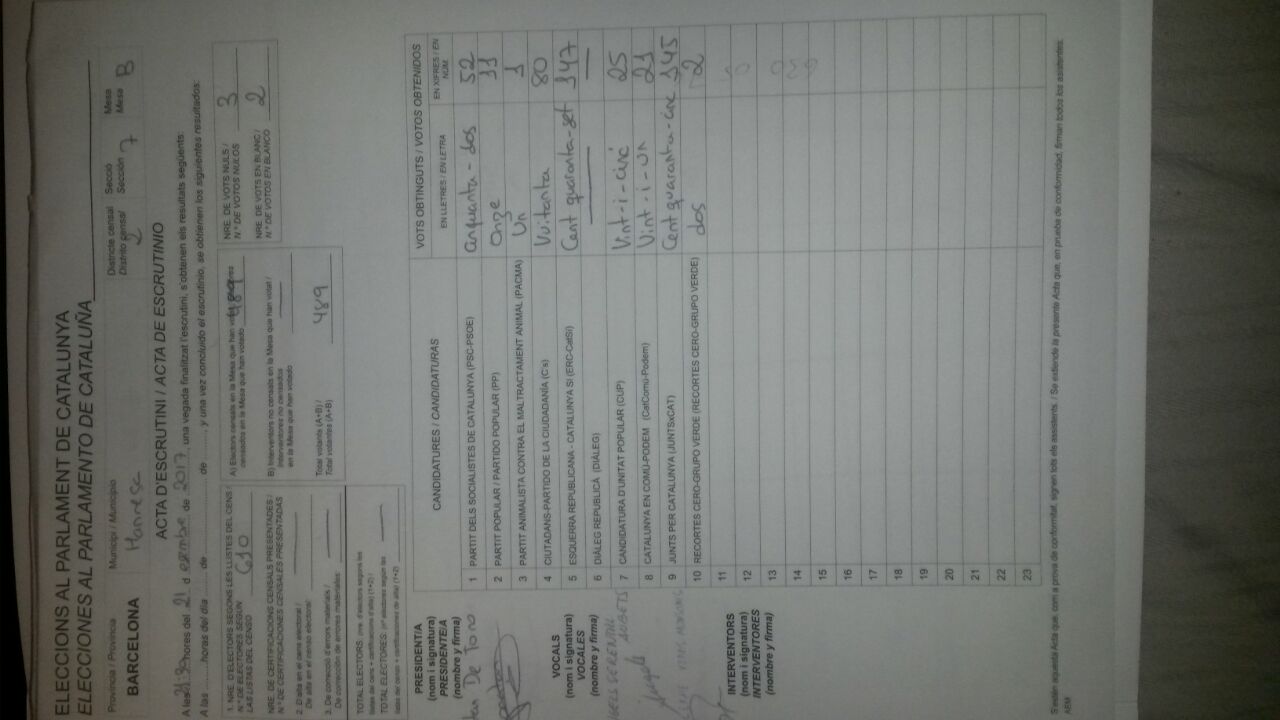 ELECCIONS AL PARLAMENT DE CATALUNYA
ELECCIONES AL PARLAMENTO DE CATALUÑA
Província / Provincia
Municipi / Municipio
Districte censal
Distrito censal
Secció
Sección
Mesa
Mesa
BARCELONA
Manresa
2
7
B
ACTA D'ESCRUTINI / ACTA DE ESCRUTINIO
A les 21:30 hores del 21 d desembre de 2017, una vegada finalitzat l'escrutini, s'obtenen els resultats següents:
A las horas del día de de , y una vez concluido el escrutinio, se obtienen los siguientes resultados:
1. NRE. D'ELECTORS SEGONS LES LLISTES DEL CENS /
N.º DE ELECTORES SEGÚN
LAS LISTAS DEL CENSO 610
NRE. DE CERTIFICACIONS CENSALS PRESENTADES /
N.º DE CERTIFICACIONES CENSALES PRESENTADAS
2. D'alta en el cens electoral /
De alta en el censo electoral:
3. De correcció d'errors materials /
De corrección de errores materiales:
TOTAL ELECTORS: (nre. d'electors segons les
llistes del cens + certificacions d'alta) (1+2) /
TOTAL ELECTORES: (nº electores según las
listas del censo + certificaciones de alta) (1+2)
A) Electors censats en la Mesa que han votat
censados en la Mesa que han votado 489
B) Interventors no censats en la Mesa que han votat /
Interventores no censados
en la Mesa que han votado
Total votants (A+B) /
Total votantes (A+B) 489
NRE. DE VOTS NULS /
N.º DE VOTOS NULOS 3
NRE. DE VOTS EN BLANC /
N.º DE VOTOS EN BLANCO 2
CANDIDATURES / CANDIDATURAS
VOTS OBTINGUTS / VOTOS OBTENIDOS
EN LLETRES / EN LETRA
EN XIFRES / EN NÚM.
1 PARTIT DELS SOCIALISTES DE CATALUNYA (PSC-PSOE) cinquanta-dos 52
2 PARTIT POPULAR / PARTIDO POPULAR (PP) Onze 11
3 PARTIT ANIMALISTA CONTRA EL MALTRACTAMENT ANIMAL (PACMA) Un 1
4 CIUTADANS-PARTIDO DE LA CIUDADANÍA (C's) Vuitanta 80
5 ESQUERRA REPUBLICANA - CATALUNYA SÍ (ERC-CatSí) Cent quaranta-set 147
6 DIÀLEG REPUBLICÀ (DIÀLEG)
7 CANDIDATURA D'UNITAT POPULAR (CUP) Vint-i-cinc 25
8 CATALUNYA EN COMÚ-PODEM (CatComú-Podem) Vint-i-un 21
9 JUNTS PER CATALUNYA (JUNTSxCAT) Cent quaranta-cinc 145
10 RECORTES CERO-GRUPO VERDE (RECORTES CERO-GRUPO VERDE) dos 2
11
12
13
14
15
16
17
18
19
20
21
22
23
PRESIDÈNTIA
(nom i signatura)
PRESIDENTE/A
(nombre y firma)
VOCALS
(nom i signatura)
VOCALES
(nombre y firma)
INTERVENTORS
(nom i signatura)
INTERVENTORES
(nombre y firma)
S'estén aquesta Acta que, com a prova de conformitat, signen tots els assistents. / Se extiende la presente Acta que, en prueba de conformidad, firman todos los asistentes.